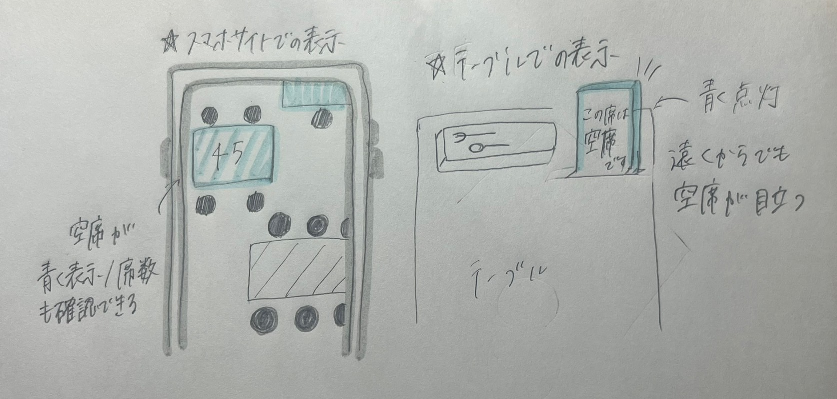 ☆スマホサイトでの表示
45
空席が
青く表示/席数
も確認できる
☆テーブルでの表示
この席は
空席
です
青く点灯
遠くからでも
空席が目立つ
テーブル